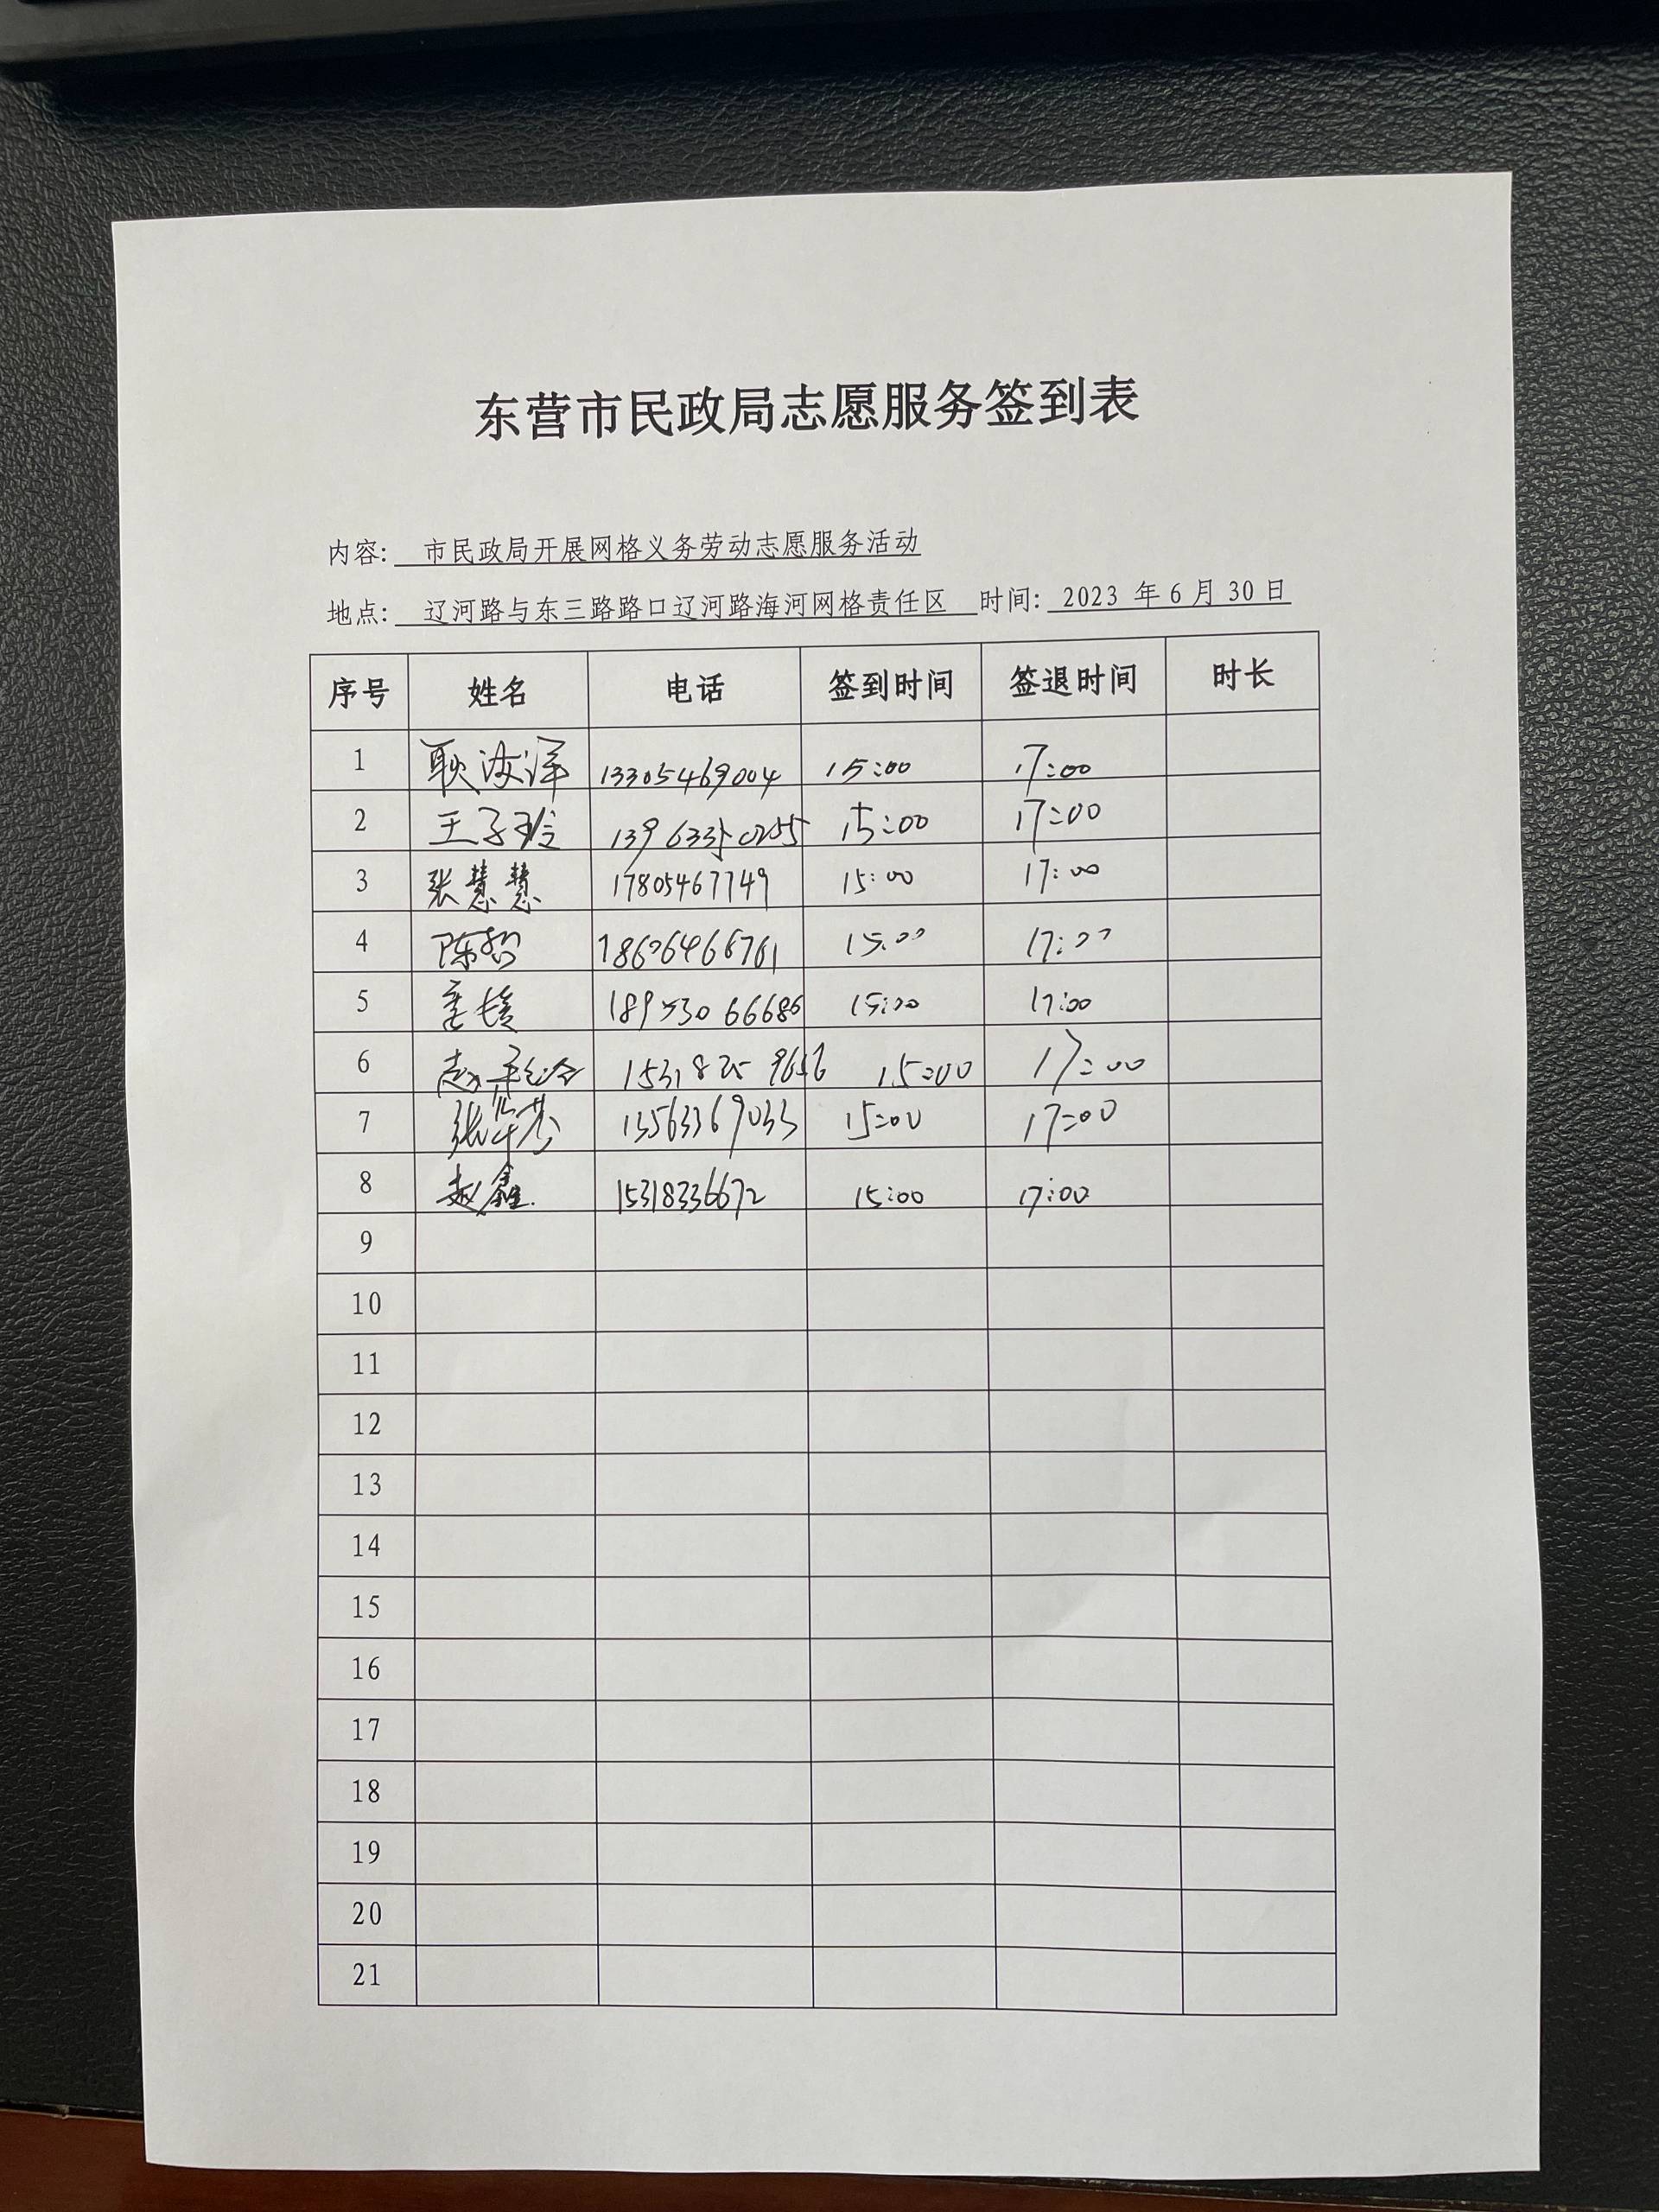 东营市民政局志愿服务签到表
内容: 市民政局开展网格义务劳动志愿服务活动
地点: 辽河路与东三路路口辽河路海河网格责任区 时间: 2023 年 6 月 30 日
序号 姓名 电话 签到时间 签退时间 时长
1 耿海洋 13305469004 15:00 17:00
2 王子玲 15:00 17:00
3 张慧慧 17805467749 15:00 17:00
4 15:00 17:00
5 15:00 17:00
6 15:00 17:00
7 13563369033 15:00 17:00
8 赵鑫 15318336672 15:00 17:00
9
10
11
12
13
14
15
16
17
18
19
20
21